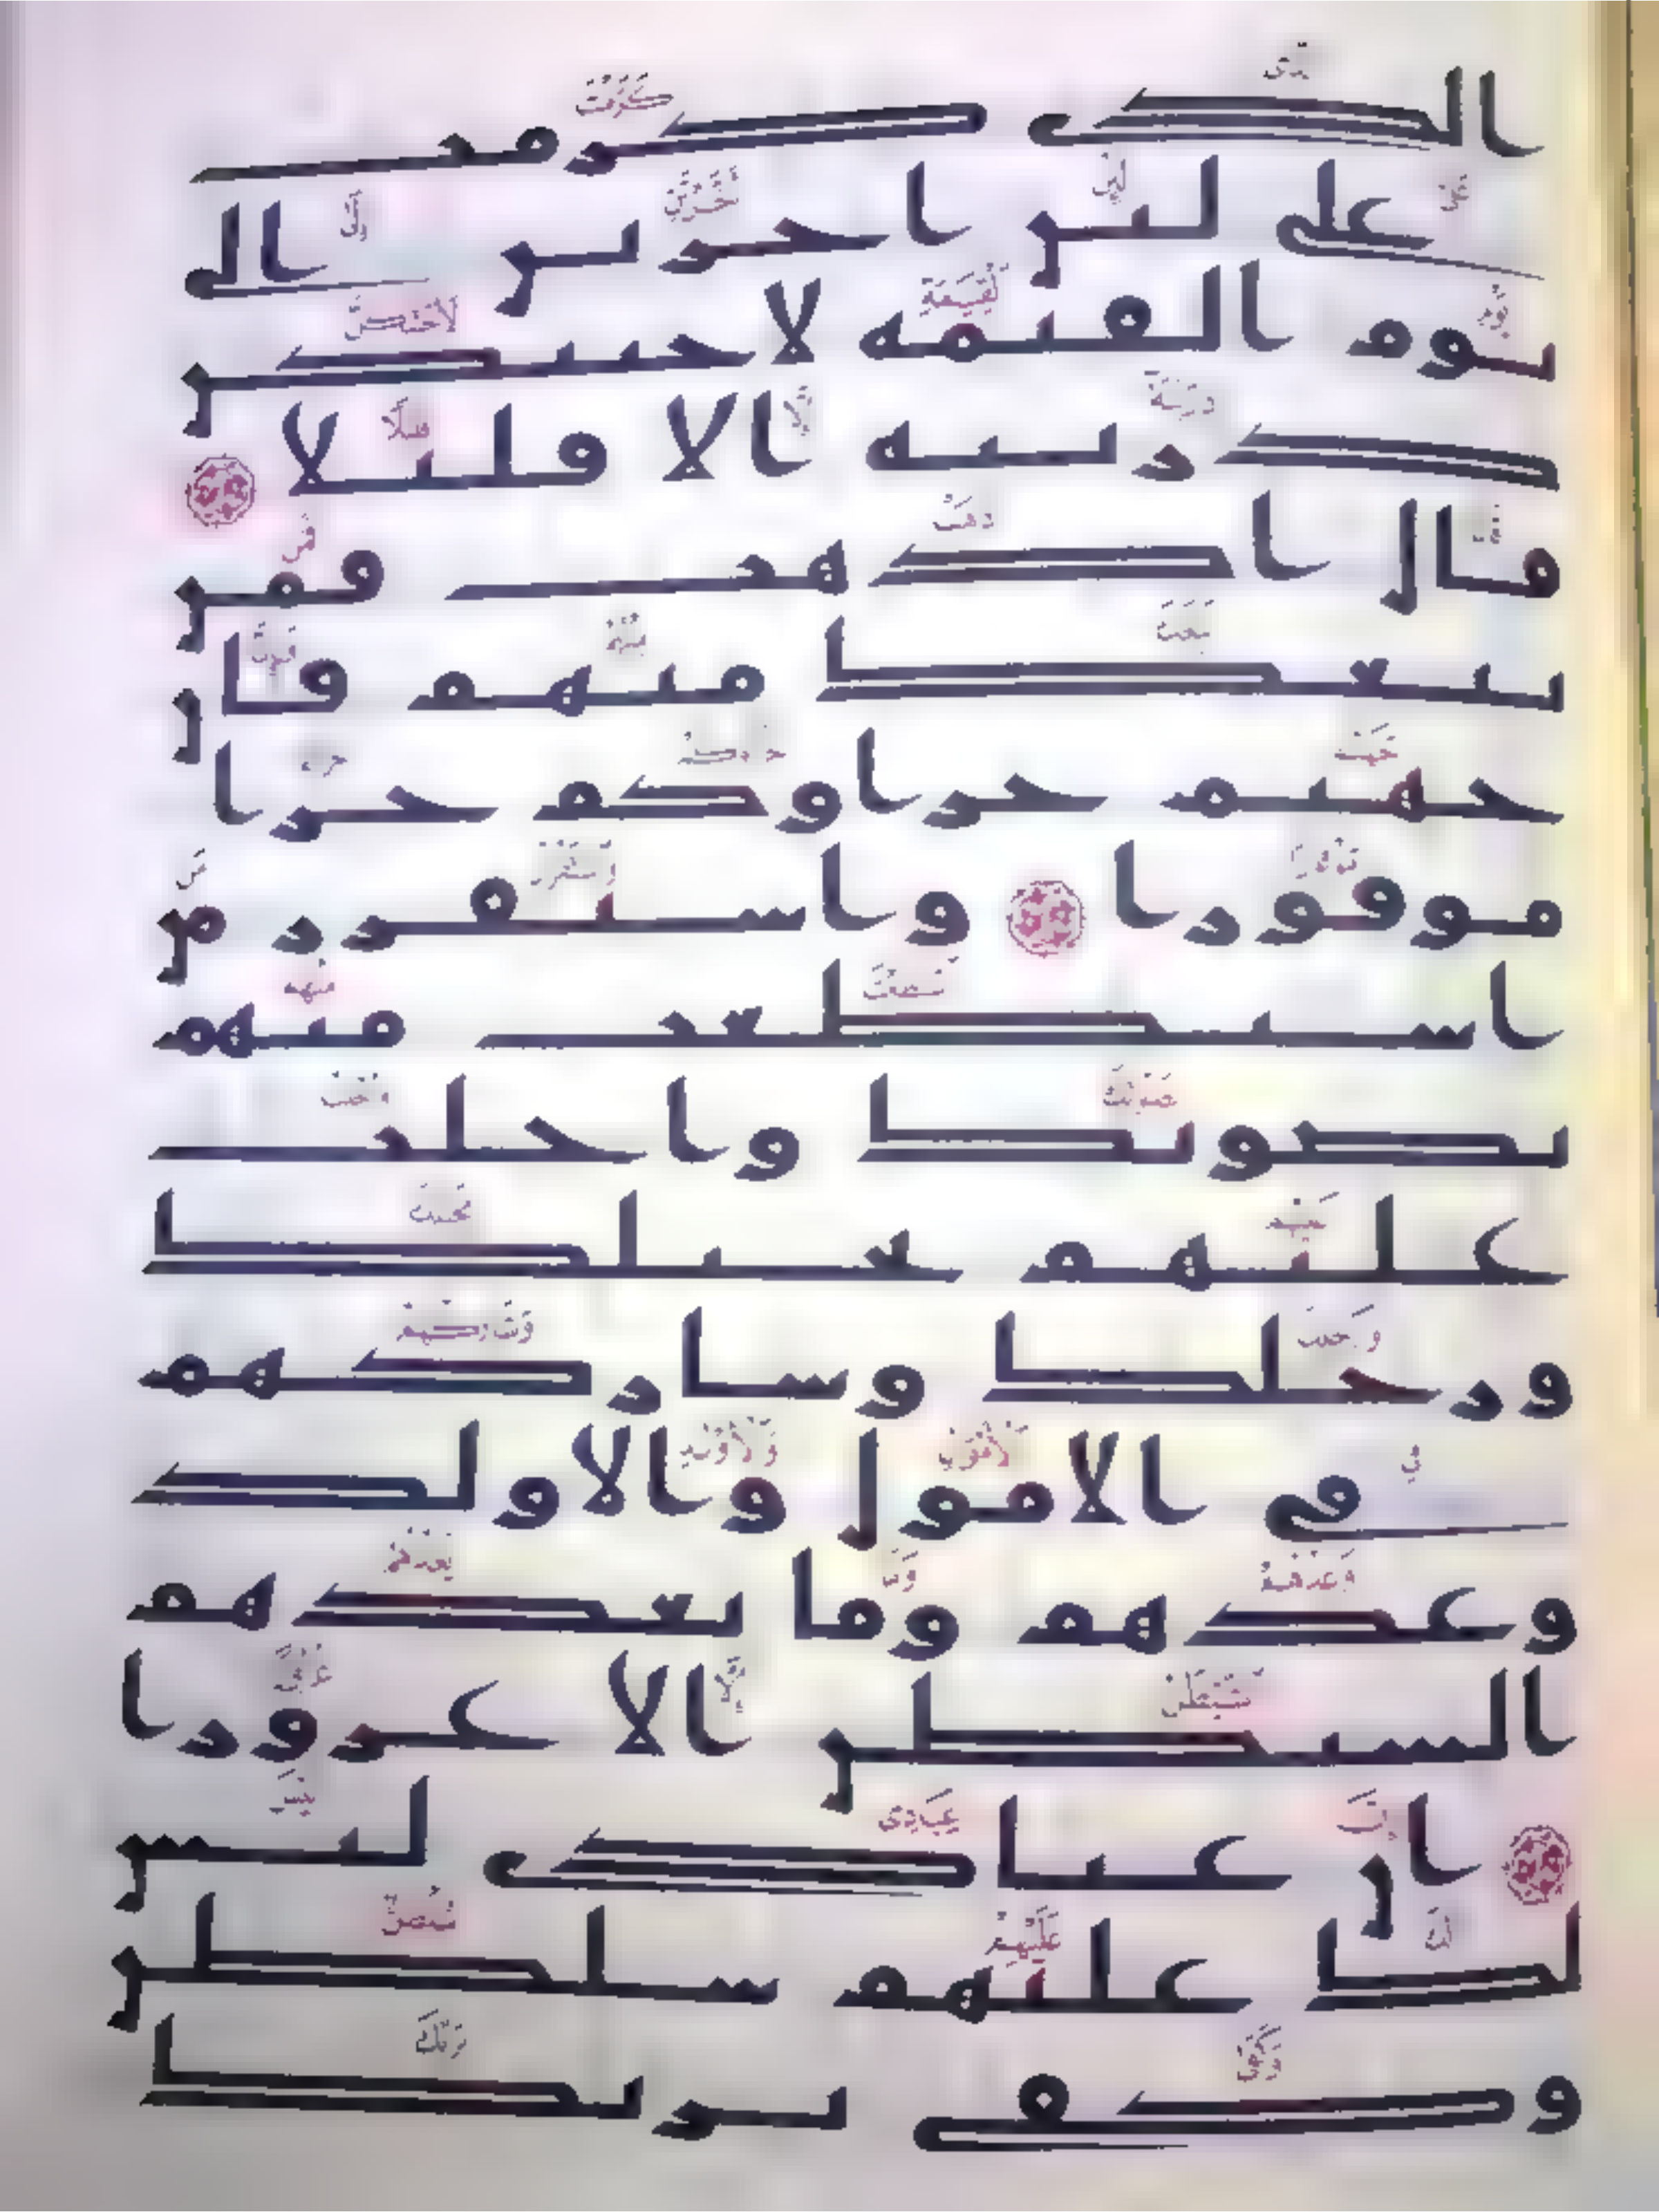 الذى كرمت
على لين اخرتن الى
يوم القيمه لاحتنكن
ذريته الا قليلا
قال اذهب فمن
تبعك منهم فان
جهنم جزاوكم جزا
موفورا واستفزز من
استطعت منهم
بصوتك واجلب
عليهم بخيلك
ورجلك وشاركهم
فى الامول والاولد
وعدهم وما يعدهم
الشيطن الا غرورا
ان عبادى ليس
لك عليهم سلطن
وكفى بربك